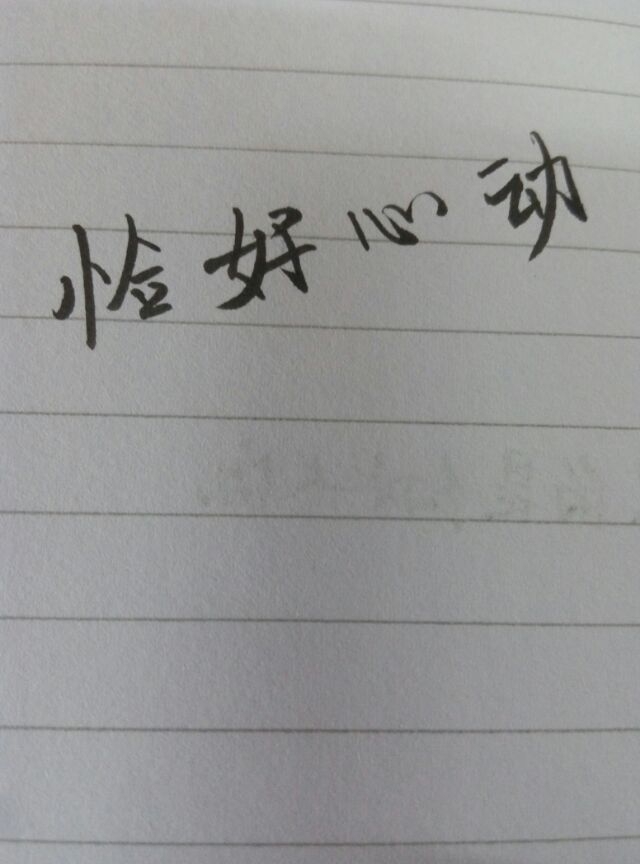 恰好心动